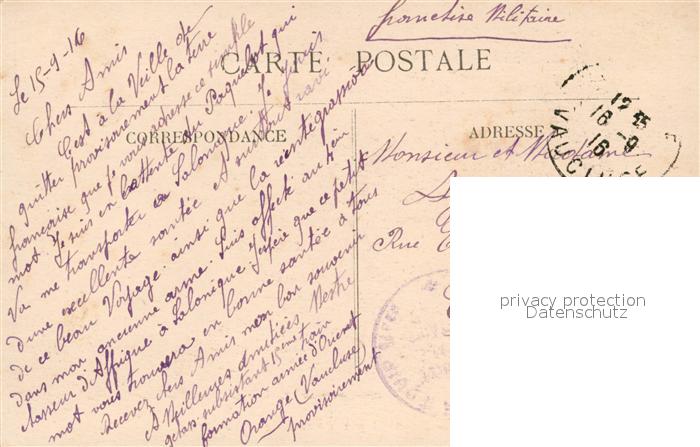 franchise Militaire
CARTE POSTALE
CORRESPONDANCE
ADRESSE
Le 15-9-16
Chers Amis
C'est à la Veille de
quitter provisoirement la terre
française que je vous adresse ce simple
mot. Je suis en l'attente du Paquebot qui
Va me transporter à Salonique. Je jouis
d'une excellente santée et suis tout ravi
de ce beau Voyage. ainsi que la réintégration
dans mon ancienne arme. Suis affecté au
chasseur d'Affrique à Salonique. J'espère que ce petit
mot vous trouvera en bonne santée à tous
Recevez chers Amis mon bon souvenir
et Meilleures amitiées Vestre
subsistant 15me train
formation armée d'Orient
Orange (Vaucluse
provisoirement
Monsieur et Madame
Rue
12
16-9
16
VAUCLUSE
privacy protection
Datenschutz